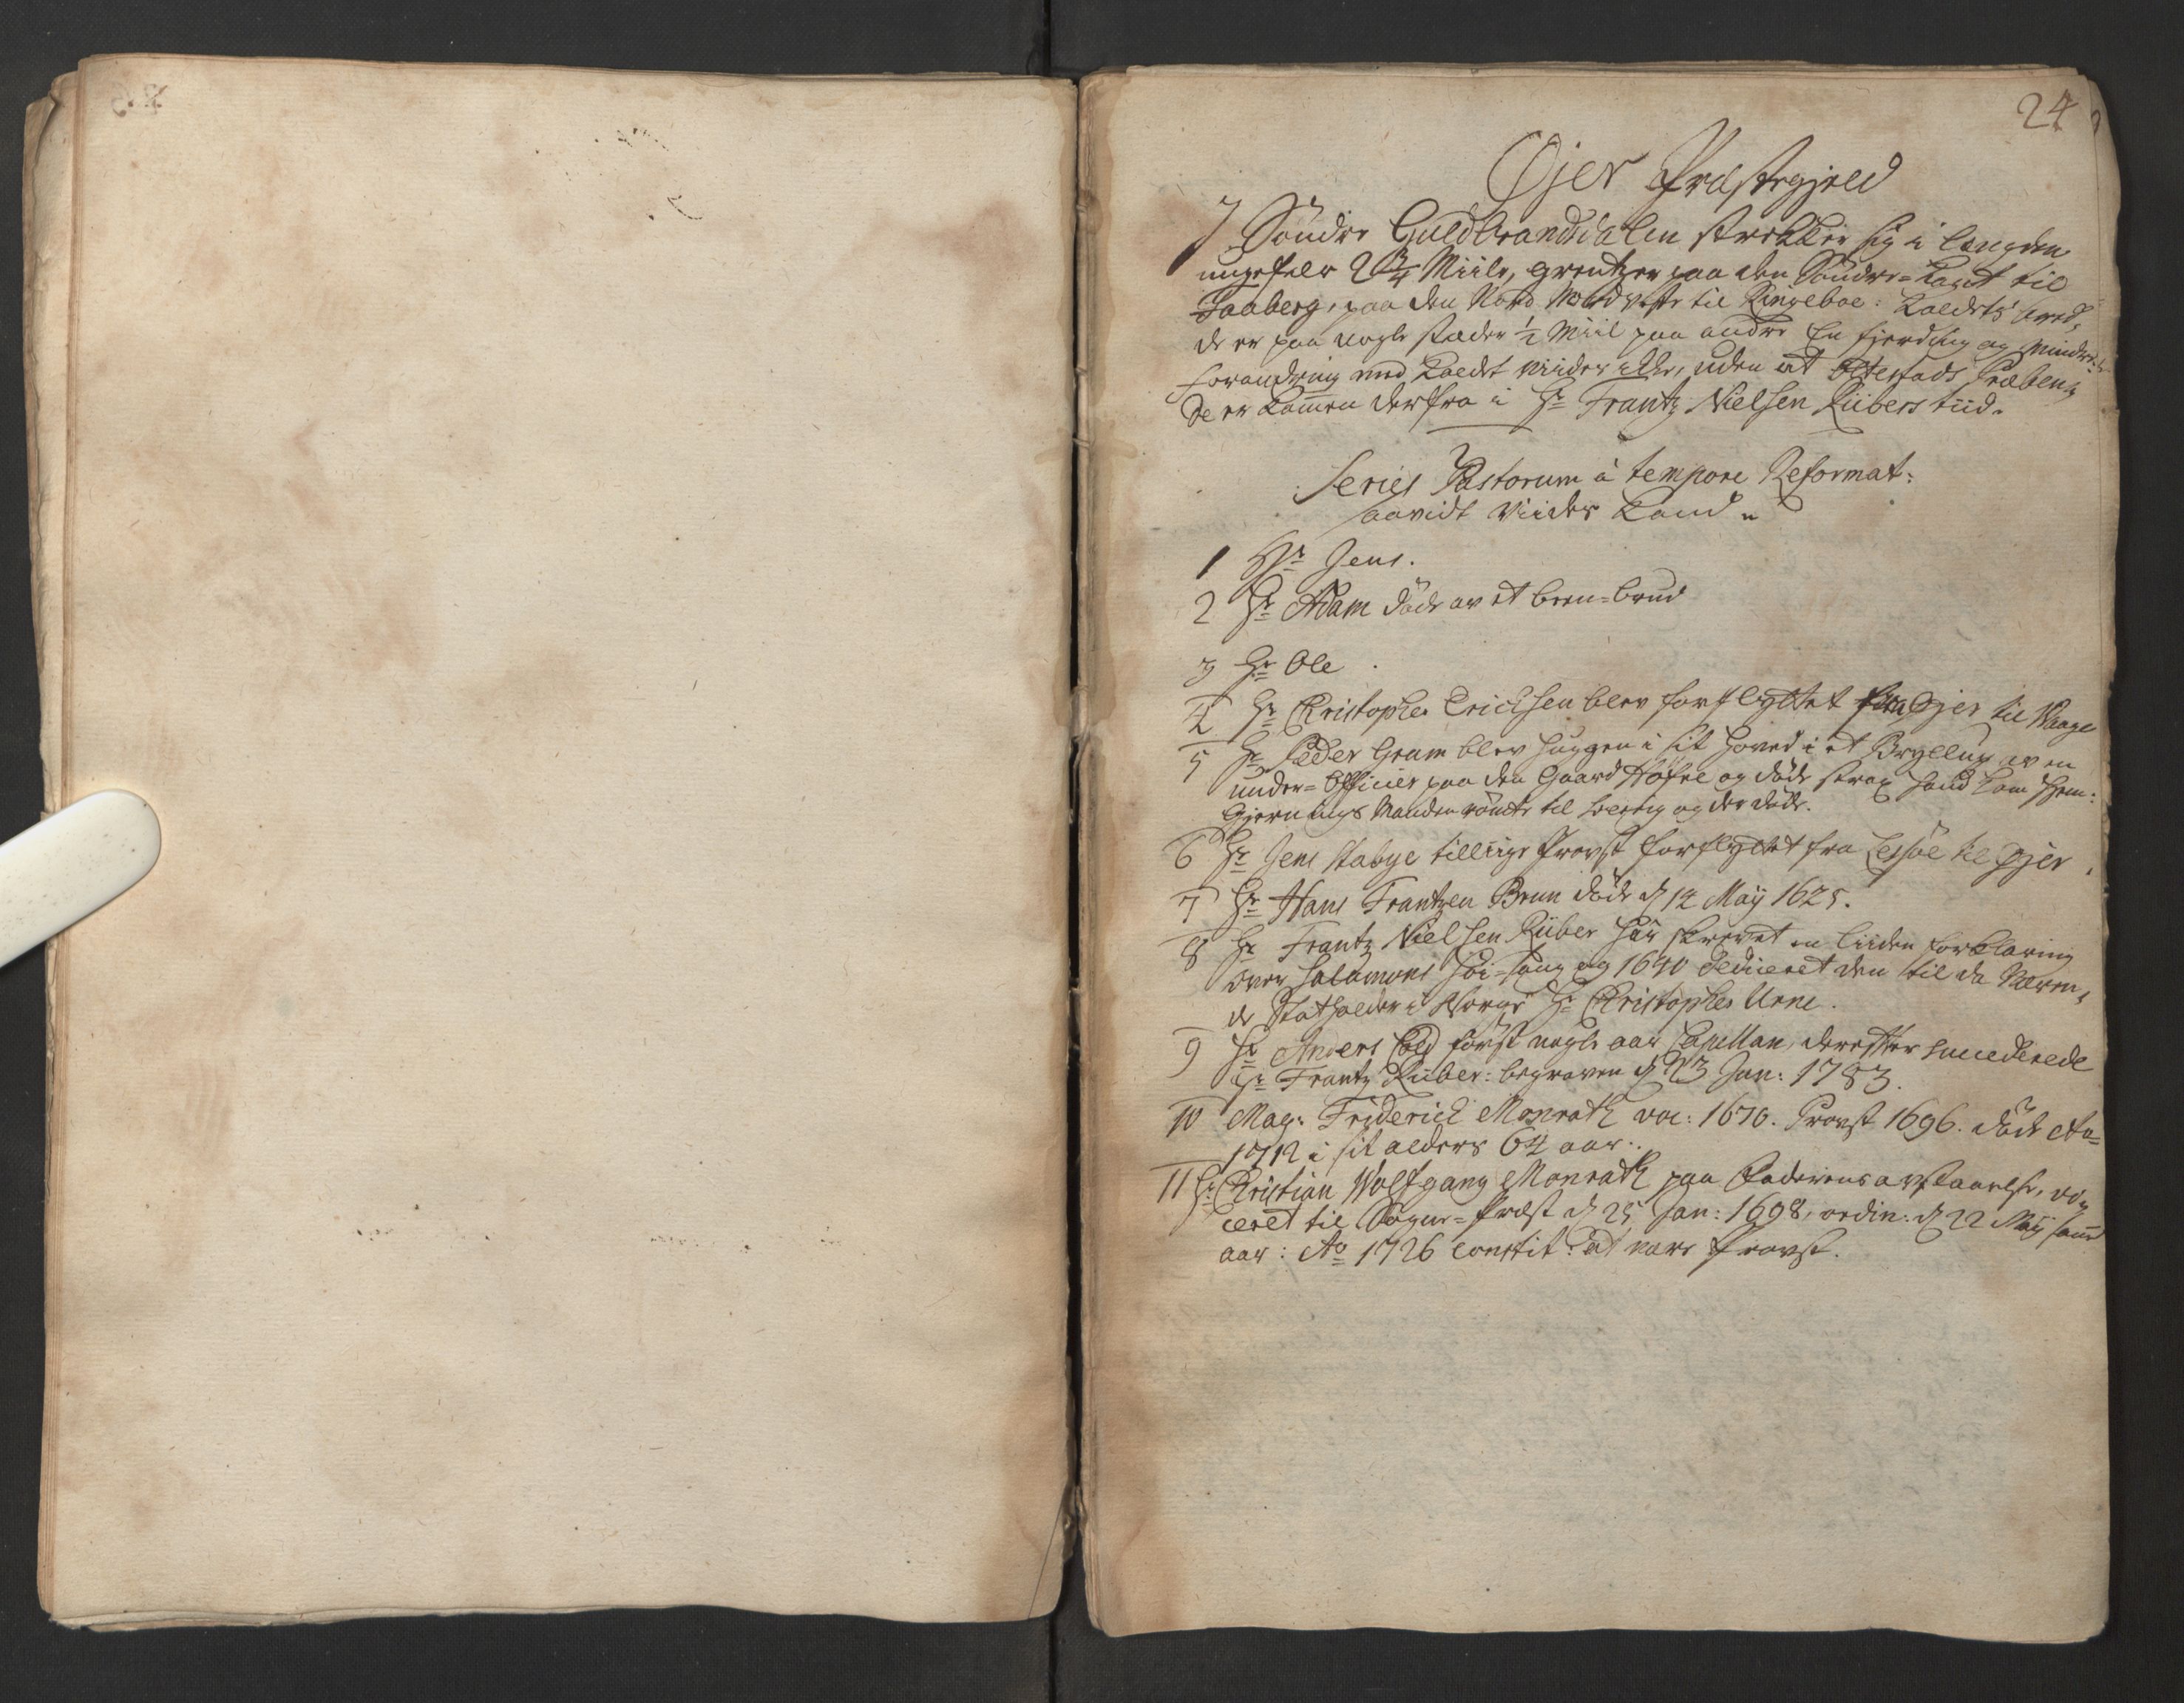 24
Øjer Præstegjeld
I Søndre Guldbrandsdalen strekker sig i længden
ungefehr 2 3/4 Miile, grentzer paa den Søndre-Kant til
Faaberg, paa den Nord Nordveste til Ringeboe: Kaldets bred-
de er paa nogle stæder 1/2 Miil paa andre En fjerding og Mindre
forandring med Kaldet viides ikke, uden at Østestads Præben-
de er kommen derfra i Hr Frantz Nielsen Rübers tiid.
Series Pastorum a tempore Reformat:
saavidt Viides Kand.
1 Hr Jens.
2 Hr Adam døde av et been-brud
3 Hr Ole
4 Hr Christopher Erichsen blev forflyttet fra Øjer til Waage
5 Hr Peder Gram blev huggen i sit hoved i et Bryllup av en
under-Officier paa den Gaard Hofre og døde strax hand kom hjem:
Gjernings Manden römte til Leerig og der døde.
6 Hr Jens Stabye tilliige Provst forflyttet fra Lessöe til Øjer
7 Hr Hans Frantzen Brun døde d 12 Maij 1625.
8 Hr Frantz Nielsen Rüber har skrevet en liiden forklaring
over Salomons Höi-sang og 1640 dediceret den til da Væren-
de Statholder i Norge Hr Christopher Urne.
9 Hr Anders Colf först nogle aar Capellan, derefter succederede
Hr Frantz Rüber: begraven d 23 Jan: 1783.
10 Mag: Friderich Monrath voc: 1670. Provst 1696. döde Ao
1712 i sit alders 64 aar.
11 Hr Christian Wolfgang Monrath paa Faderens avstaaelse, vo-
ceret til Sogne-Præst d 25 Jan: 1698, ordin: d 22 Maij samme
aar: Ao 1726 constit: at være Provst.